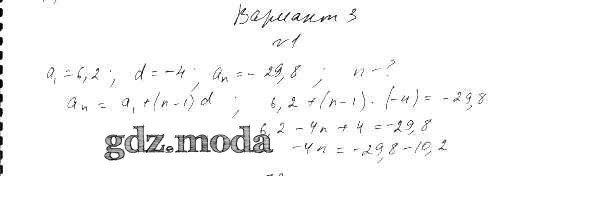 Вариант 3
№1
a₁ = 6,2 ; d = -4 ; aₙ = - 29,8 ; n - ?
aₙ = a₁ + (n-1)d ; 6,2 + (n-1) · (-4) = -29,8
6,2 - 4n + 4 = -29,8
gdz.moda
-4n = -29,8 - 10,2